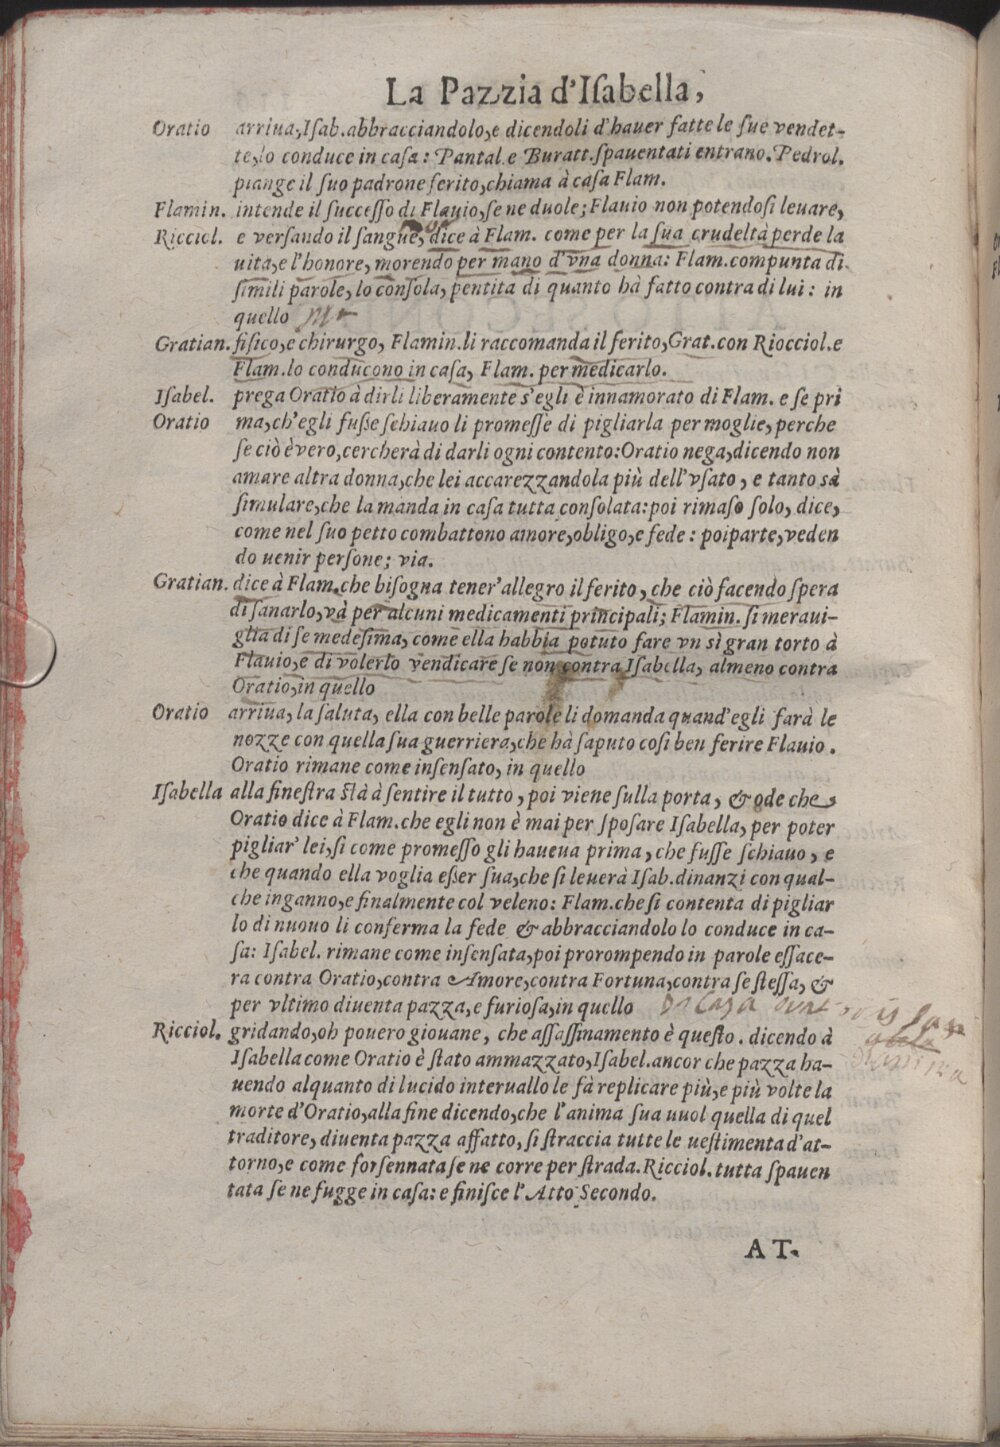 La Pazzia d'Iſabella,
Oratio arriua, Iſab. abbracciandolo, e dicendoli d'hauer fatte le ſue vendet-
te, lo conduce in caſa: Pantal. e Buratt. ſpauentati entrano. Pedrol.
piange il ſuo padrone ferito, chiama à caſa Flam.
Flamin. intende il ſucceſſo di Flauio, ſe ne duole; Flauio non potendoſi leuare,
Ricciol. e verſando il ſangue, dice à Flam. come per la ſua crudeltà perde la
uita, e l'honore, morendo per mano d'vna donna: Flam. compunta di
ſimili parole, lo conſola, pentita di quanto hà fatto contra di lui: in
quello
Gratian. fiſico, e chirurgo, Flamin. li raccomanda il ferito, Grat. con Riocciol. e
Flam. lo conducono in caſa, Flam. per medicarlo.
Iſabel. prega Oratio à dirli liberamente s'egli è innamorato di Flam. e ſe pri
Oratio ma, ch'egli fuſſe ſchiauo li promeſſe di pigliarla per moglie, perche
ſe ciò è vero, cercherà di darli ogni contento: Oratio nega, dicendo non
amare altra donna, che lei accarezzandola più dell'vſato, e tanto sà
ſimulare, che la manda in caſa tutta conſolata: poi rimaſo ſolo, dice,
come nel ſuo petto combattono amore, obligo, e fede: poi parte, veden
do uenir perſone; via.
Gratian. dice à Flam. che biſogna tener'allegro il ferito, che ciò facendo ſpera
di ſanarlo, và per alcuni medicamenti principali; Flamin. ſi meraui-
glia di ſe medeſima, come ella habbia potuto fare vn sì gran torto à
Flauio, e di volerlo vendicare ſe non contra Iſabella, almeno contra
Oratio, in quello
Oratio arriua, la ſaluta, ella con belle parole li domanda quand'egli farà le
nozze con quella ſua guerriera, che hà ſaputo coſi ben ferire Flauio.
Oratio rimane come inſenſato, in quello
Iſabella alla fineſtra ſtà à ſentire il tutto, poi viene ſulla porta, & ode che
Oratio dice à Flam. che egli non è mai per ſpoſare Iſabella, per poter
pigliar' lei, ſi come promeſſo gli haueua prima, che fuſſe ſchiauo, e
che quando ella voglia eſſer ſua, che ſi leuerà Iſab. dinanzi con qual-
che inganno, e finalmente col veleno: Flam. che ſi contenta di pigliar
lo di nuouo li conferma la fede & abbracciandolo lo conduce in ca-
ſa: Iſabel. rimane come inſenſata, poi prorompendo in parole eſſace-
ra contra Oratio, contra Amore, contra Fortuna, contra ſe ſteſſa, &
per vltimo diuenta pazza, e furioſa, in quello
Ricciol. gridando, oh pouero giouane, che aſſaſſinamento è queſto. dicendo à
Iſabella come Oratio è ſtato ammazzato, Iſabel. ancor che pazza ha-
uendo alquanto di lucido interuallo le fà replicare più, e più volte la
morte d'Oratio, alla fine dicendo, che l'anima ſua uuol quella di quel
traditore, diuenta pazza affatto, ſi ſtraccia tutte le ueſtimenta d'at-
torno, e come forſennata ſe ne corre per ſtrada. Ricciol. tutta ſpauen
tata ſe ne fugge in caſa: e finiſce l'Atto Secondo.
AT.